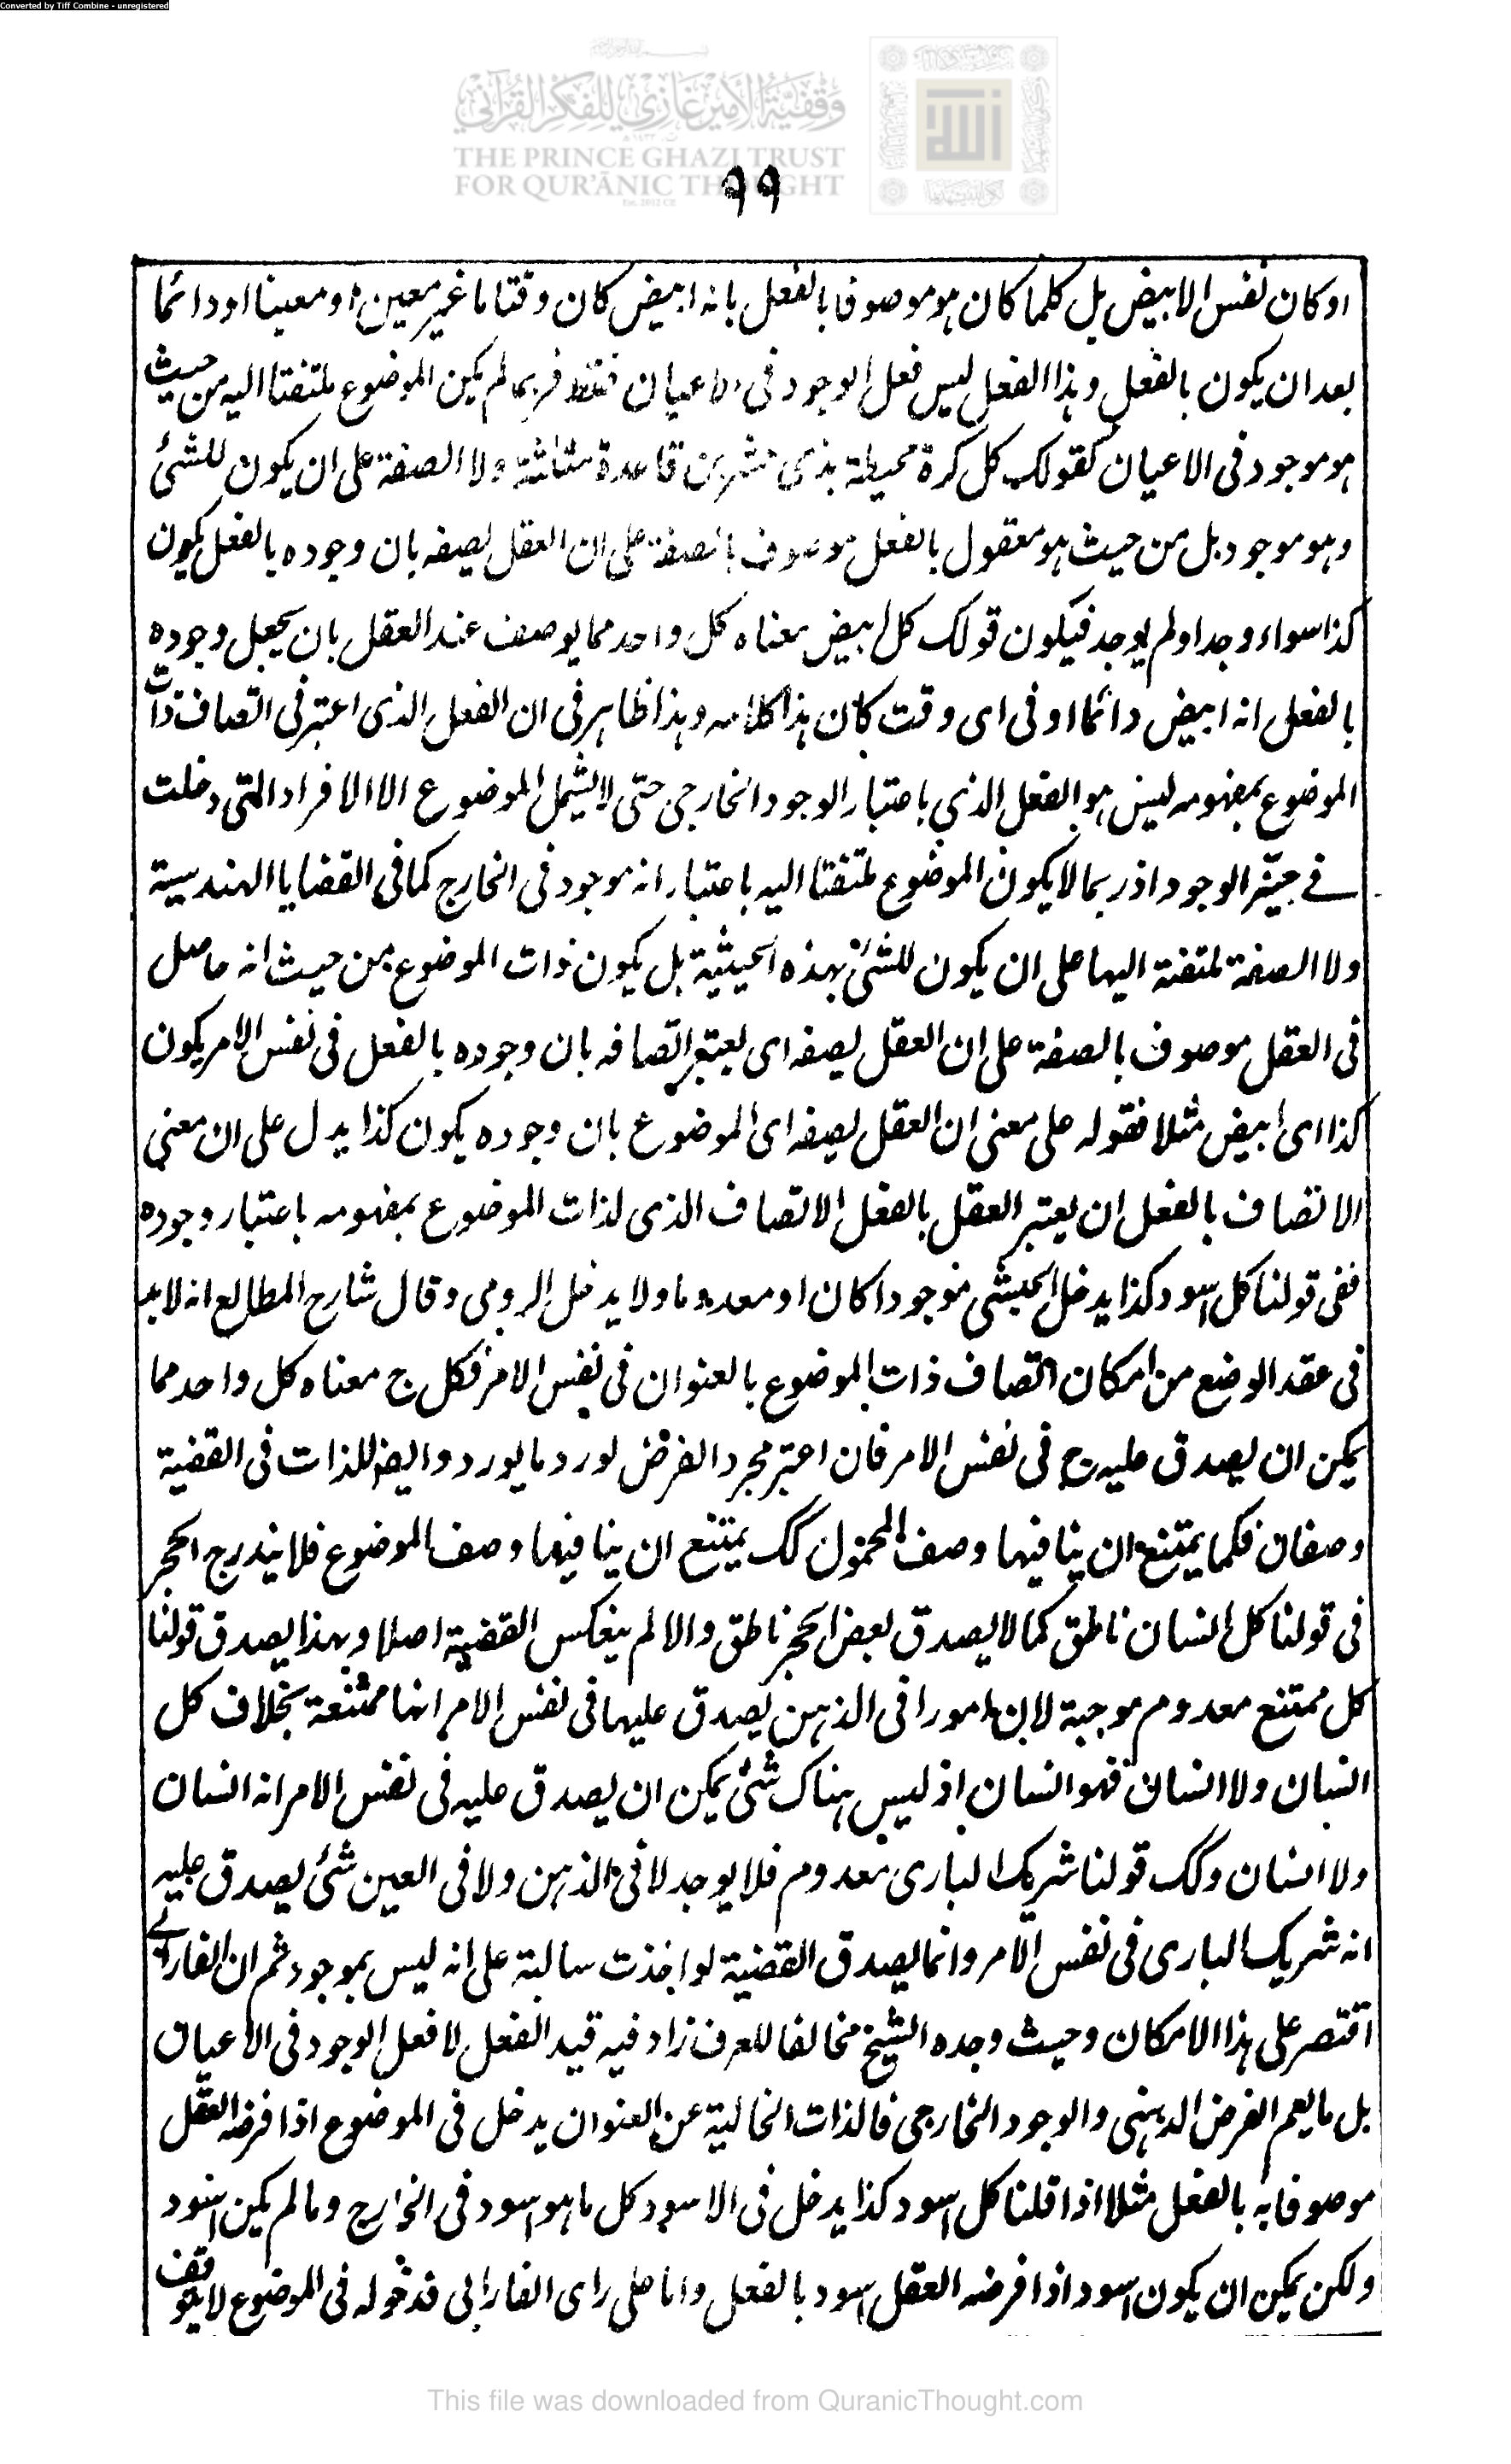 Converted by Tiff Combine - unregistered
وقفية الأمير غازي للفكر القرآني
THE PRINCE GHAZI TRUST
FOR QUR'ĀNIC THOUGHT
٩٩
او كان نفس الابيض بل كلما كان هو موصوفا بالفعل بانه ابيض كان وقتا ما غير معين او معينا او دائما
بعد ان يكون بالفعل وهذا الفعل ليس فعل الوجود فى الاعيان فقط فربما لم يكن الموضوع ملتفتا اليه من حيث
هو موجود فى الاعيان كقولك كل كرة محيطة بذى عشرين قاعدة مثلثة ولا الصفة على ان يكون للشئ
وهو موجود بل من حيث هو معقول بالفعل موصوف بالصفة على ان العقل يصفه بان وجوده بالفعل يكون
كذا سواء وجد او لم يوجد فيكون قولك كل ابيض معناه كل واحد مما يوصف عند العقل بان يجعل وجوده
بالفعل انه ابيض دائما او فى اى وقت كان هذا كلامه وهذا ظاهر فى ان الفعل الذى اعتبر فى اتصاف ذات
الموضوع بمفهومه ليس هو الفعل الذي باعتبار الوجود الخارجى حتى لا يشمل الموضوع الا الافراد التى دخلت
فے حيّز الوجود اذ ربما لا يكون الموضوع ملتفتا اليه باعتبار انه موجود فى الخارج كما فى القضايا الهندسية
ولا الصفة ملتفتة اليها على ان يكون للشئ بهذه الحيثية بل يكون ذات الموضوع من حيث انه حاصل
فى العقل موصوف بالصفة على ان العقل يصفه اى يعتبر اتصافه بان وجوده بالفعل فى نفس الامر يكون
كذا اى ابيض مثلا فقوله على معنى ان العقل يصفه اى الموضوع بان وجوده يكون كذا يدل على ان معني
الاتصاف بالفعل ان يعتبر العقل بالفعل الاتصاف الذى لذات الموضوع بمفهومه باعتبار وجوده
ففى قولنا كل اسود كذا يدخل الحبشى موجودا كان او معدوما ولا يدخل الرومى وقال شارح المطالع انه لابد
فى عقد الوضع من امكان اتصاف ذات الموضوع بالعنوان فى نفس الامر فكل ج معناه كل واحد مما
يمكن ان يصدق عليه ج فى نفس الامر فان اعتبر مجرد الفرض لورد ما يورد وايضا للذات فى القضية
وصفان فكما يمتنع ان ينافيها وصف المحمول كك يمتنع ان ينافيها وصف الموضوع فلا يندرج الحجر
فى قولنا كل انسان ناطق كما لا يصدق بعض الحجر ناطق والا لم ينعكس القضية اصلا وبهذا يصدق قولنا
كل ممتنع معدوم موجبة لان امورا فى الذهن يصدق عليها فى نفس الامر انها ممتنعة بخلاف كل
انسان ولا انسان فهو انسان اذ ليس هناك شئ يمكن ان يصدق عليه فى نفس الامر انه انسان
ولا انسان وكك قولنا شريك البارى معدوم فلا يوجد لا فى الذهن ولا فى العين شئ يصدق عليه
انه شريك البارى فى نفس الامر وانما يصدق القضية لو اخذت سالبة على انه ليس بموجود ثم ان الفارابے
اقتصر على هذا الامكان وحيث وجده الشيخ مخالفا للعرف زاد فيه قيد الفعل لا فعل الوجود فى الاعيان
بل ما يعم الفرض الذهنى والوجود الخارجى فالذات الخالية عن العنوان يدخل فى الموضوع اذا فرضه العقل
موصوفا به بالفعل مثلا اذا قلنا كل اسود كذا يدخل فى الاسود كل ما هو اسود فى الخارج وما لم يكن اسود
ولكن يمكن ان يكون اسود اذا فرضه العقل اسود بالفعل واما على راى الفارابى فدخوله فى الموضوع لا يتوقف
This file was downloaded from QuranicThought.com